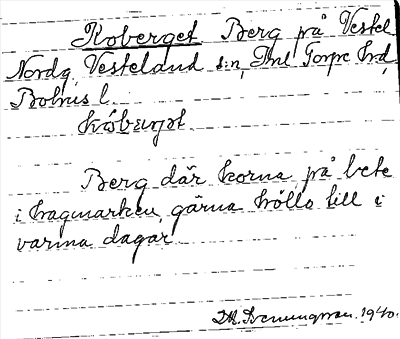 Koberget Berg på Vestel
Nordg, Vesteland s:n, Inl Torpe hrd,
Bohus l.
kóbærjət
Berg där korna på bete
i hagmarken gärna höllo till i
varma dagar
1940.